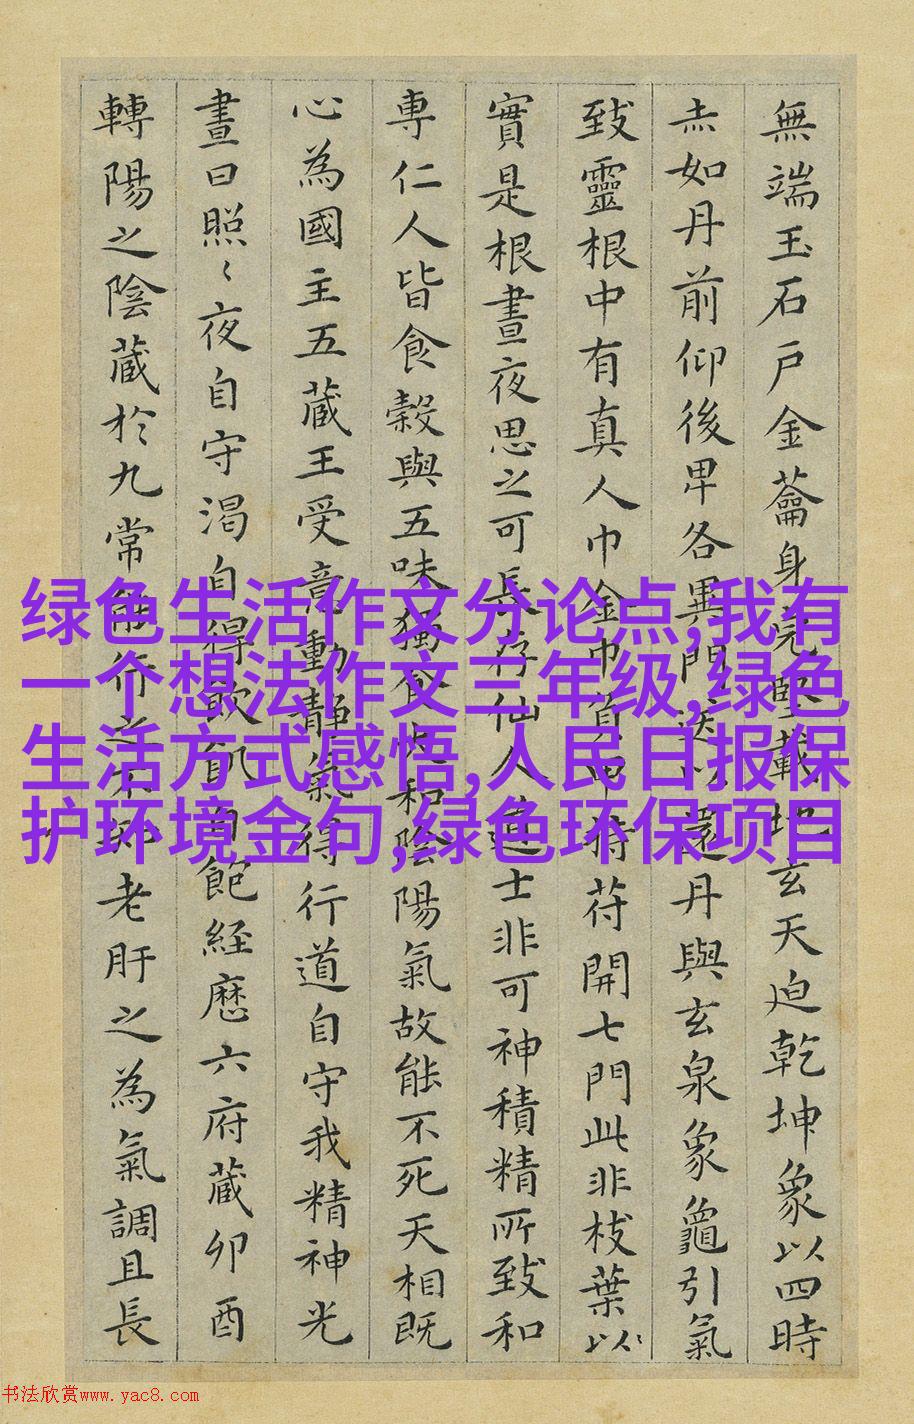 無端玉石戶金蘥身完堅載地玄天迫乾坤象以四時
赤如丹前仰後卑各異門送以還丹與玄泉象龜引氣
致靈根中有真人巾金巾負甲持苻開七門此非枝葉以
實是根晝夜思之可長存仙人道士非可神積精所致和
專仁人皆食穀與五味獨食太和陰陽氣故能不死天相既
心為國主五藏王受意動靜氣得行道自守我精神光
晝日照〻夜自守渴自得飲飢自飽経歷六府藏卯酉
轉陽之陰藏於九常能行之不知老肝之為氣調且長
绿色生活作文分论点,我有
一个想法作文三年级,绿色
生活方式感悟,人民日报保
护环境金句,绿色环保项目
书法欣赏www.yac8.com